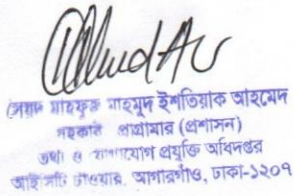 সৈয়দ মাহফুজ মাহমুদ ইশতিয়াক আহমেদ
সহকারী প্রোগ্রামার (প্রশাসন)
তথ্য ও যোগাযোগ প্রযুক্তি অধিদপ্তর
আইসিটি টাওয়ার, আগারগাঁও, ঢাকা-১২০৭